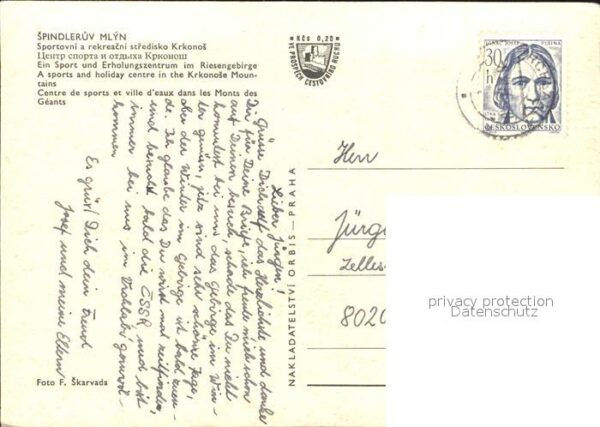 ŠPINDLERŮV MLÝN
Sportovní a rekreační středisko Krkonoš
Центр спорта и отдыха Крконош
Ein Sport und Erholungszentrum im Riesengebirge
A sports and holiday centre in the Krkonoše Moun-
tains
Centre de sports et ville d'eaux dans les Monts des
Géants
Kčs 0,20
VE PROSPĚCH CESTOVNÍHO RUCHU
30
h
ČESKOSLOVENSKO
Lieber Jürgen!
Grüsse Dich auf das Herzlichste und danke
Dir für Deine Briefe, ich freude mich schon
auf Deinen besuch, schade das Du nicht
kommtest bei uns das Gebirge im Win-
ter jetzt sind sehr schöne Tage,
aber der Winter im Gebirge ist bald zuen-
de. Ich glaube das Du wirst mal
und besuchst bald die ČSSR und bist
immer bei uns in Vrchlabí
kommen.
Es grüsst Dich dein Freund
Josef und meine Eltern
NAKLADATELSTVÍ ORBIS — PRAHA
Herr
Jürge
Zelles
8020
privacy protection
Datenschutz
Foto F. Škarvada